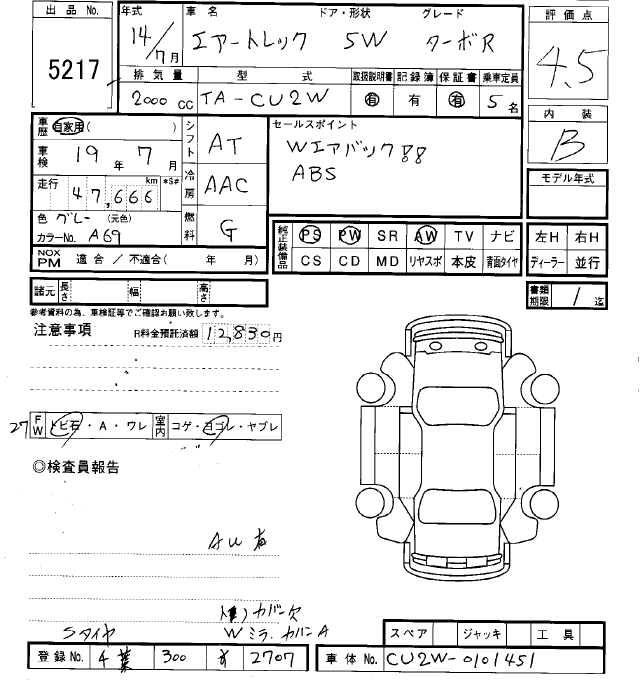 出品No.
5217
年式 車名 ドア・形状 グレード
14/7月 エアートレック 5W ターボR
排気量 型式 取扱説明書 記録簿 保証書 乗車定員
2000cc TA-CU2W 有 有 有 5名
評価点
4.5
内装
B
モデル年式
車歴 自家用( )
車検 19年7月
走行 47,666 km *$#
色 グレー (元色)
カラーNo. A69
シフト AT
冷房 AAC
燃料 G
セールスポイント
Wエアバック!!
ABS
NOX PM 適合/不適合( 年 月)
純正装備品 PS PW SR AW TV ナビ
CS CD MD リヤスポ 本皮 背面タイヤ
左H 右H
ディーラー 並行
諸元 長さ 幅 高さ
書類期限 1迄
参考資料の為、車検証等でご確認お願い致します。
注意事項 R料金預託済額 12,830円
27 FW トビ石・A・ワレ 室内 コゲ・ヨゴレ・ヤブレ
◎検査員報告
AW
カバー欠
Sタイヤ Wミラ、カバンA
スペア ジャッキ 工具
登録No. 千葉 300 す 2707
車体No. CU2W-0101451